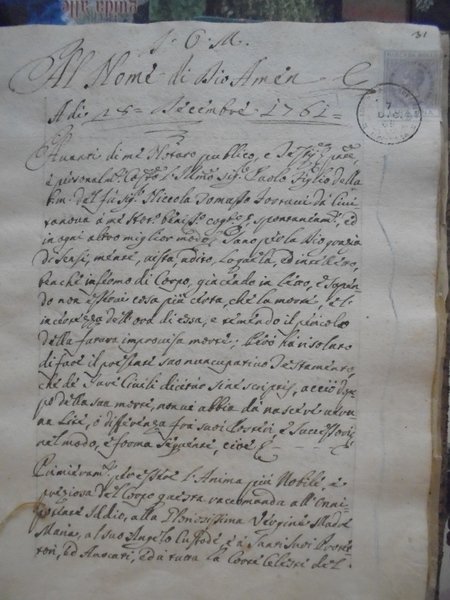 31
J. O. M.
Al Nome di Dio Amen
A di 18 = Decembre 1761 =
Avanti di me Notaro publico, e
e personalm. l'Illmo Sig. Paolo figlio della
bm. del fù Sig. Niccola Tomasso da Civi
tanova à me Not. beniss. cog. spontaneam. ed
in ogni altro miglior modo, Sano per la Dio grazia
di Sensi, mente, vista, udito, Loquela, ed intelletto,
benche infermo di Corpo, giacendo in letto, e Sapen
do non esservi cosa più certa, che la morte, e l'
incertezza dell'ora di essa, e temendo il pericolo
della futura improvisa morte; Però hà risoluto
di fare il presente suo nuncupativo Testamento,
che de Jure Civili dicitur sine scriptis, acciò dop
po della sua morte, non ne abbia da nascere alcu
na Lite, ò differenza frà suoi Posteri, e Successori,
nel modo, e forma Seguente, cioè
Primieram. che essere l'Anima più Nobile, e
preziosa del Corpo questa raccomanda all'Onni
potente Iddio, alla Vergine Madre
Maria, al suo Angelo Custode, e à Santi Suoi Protet
tori, ed Avocati, ed à tutta la Corte Celeste del